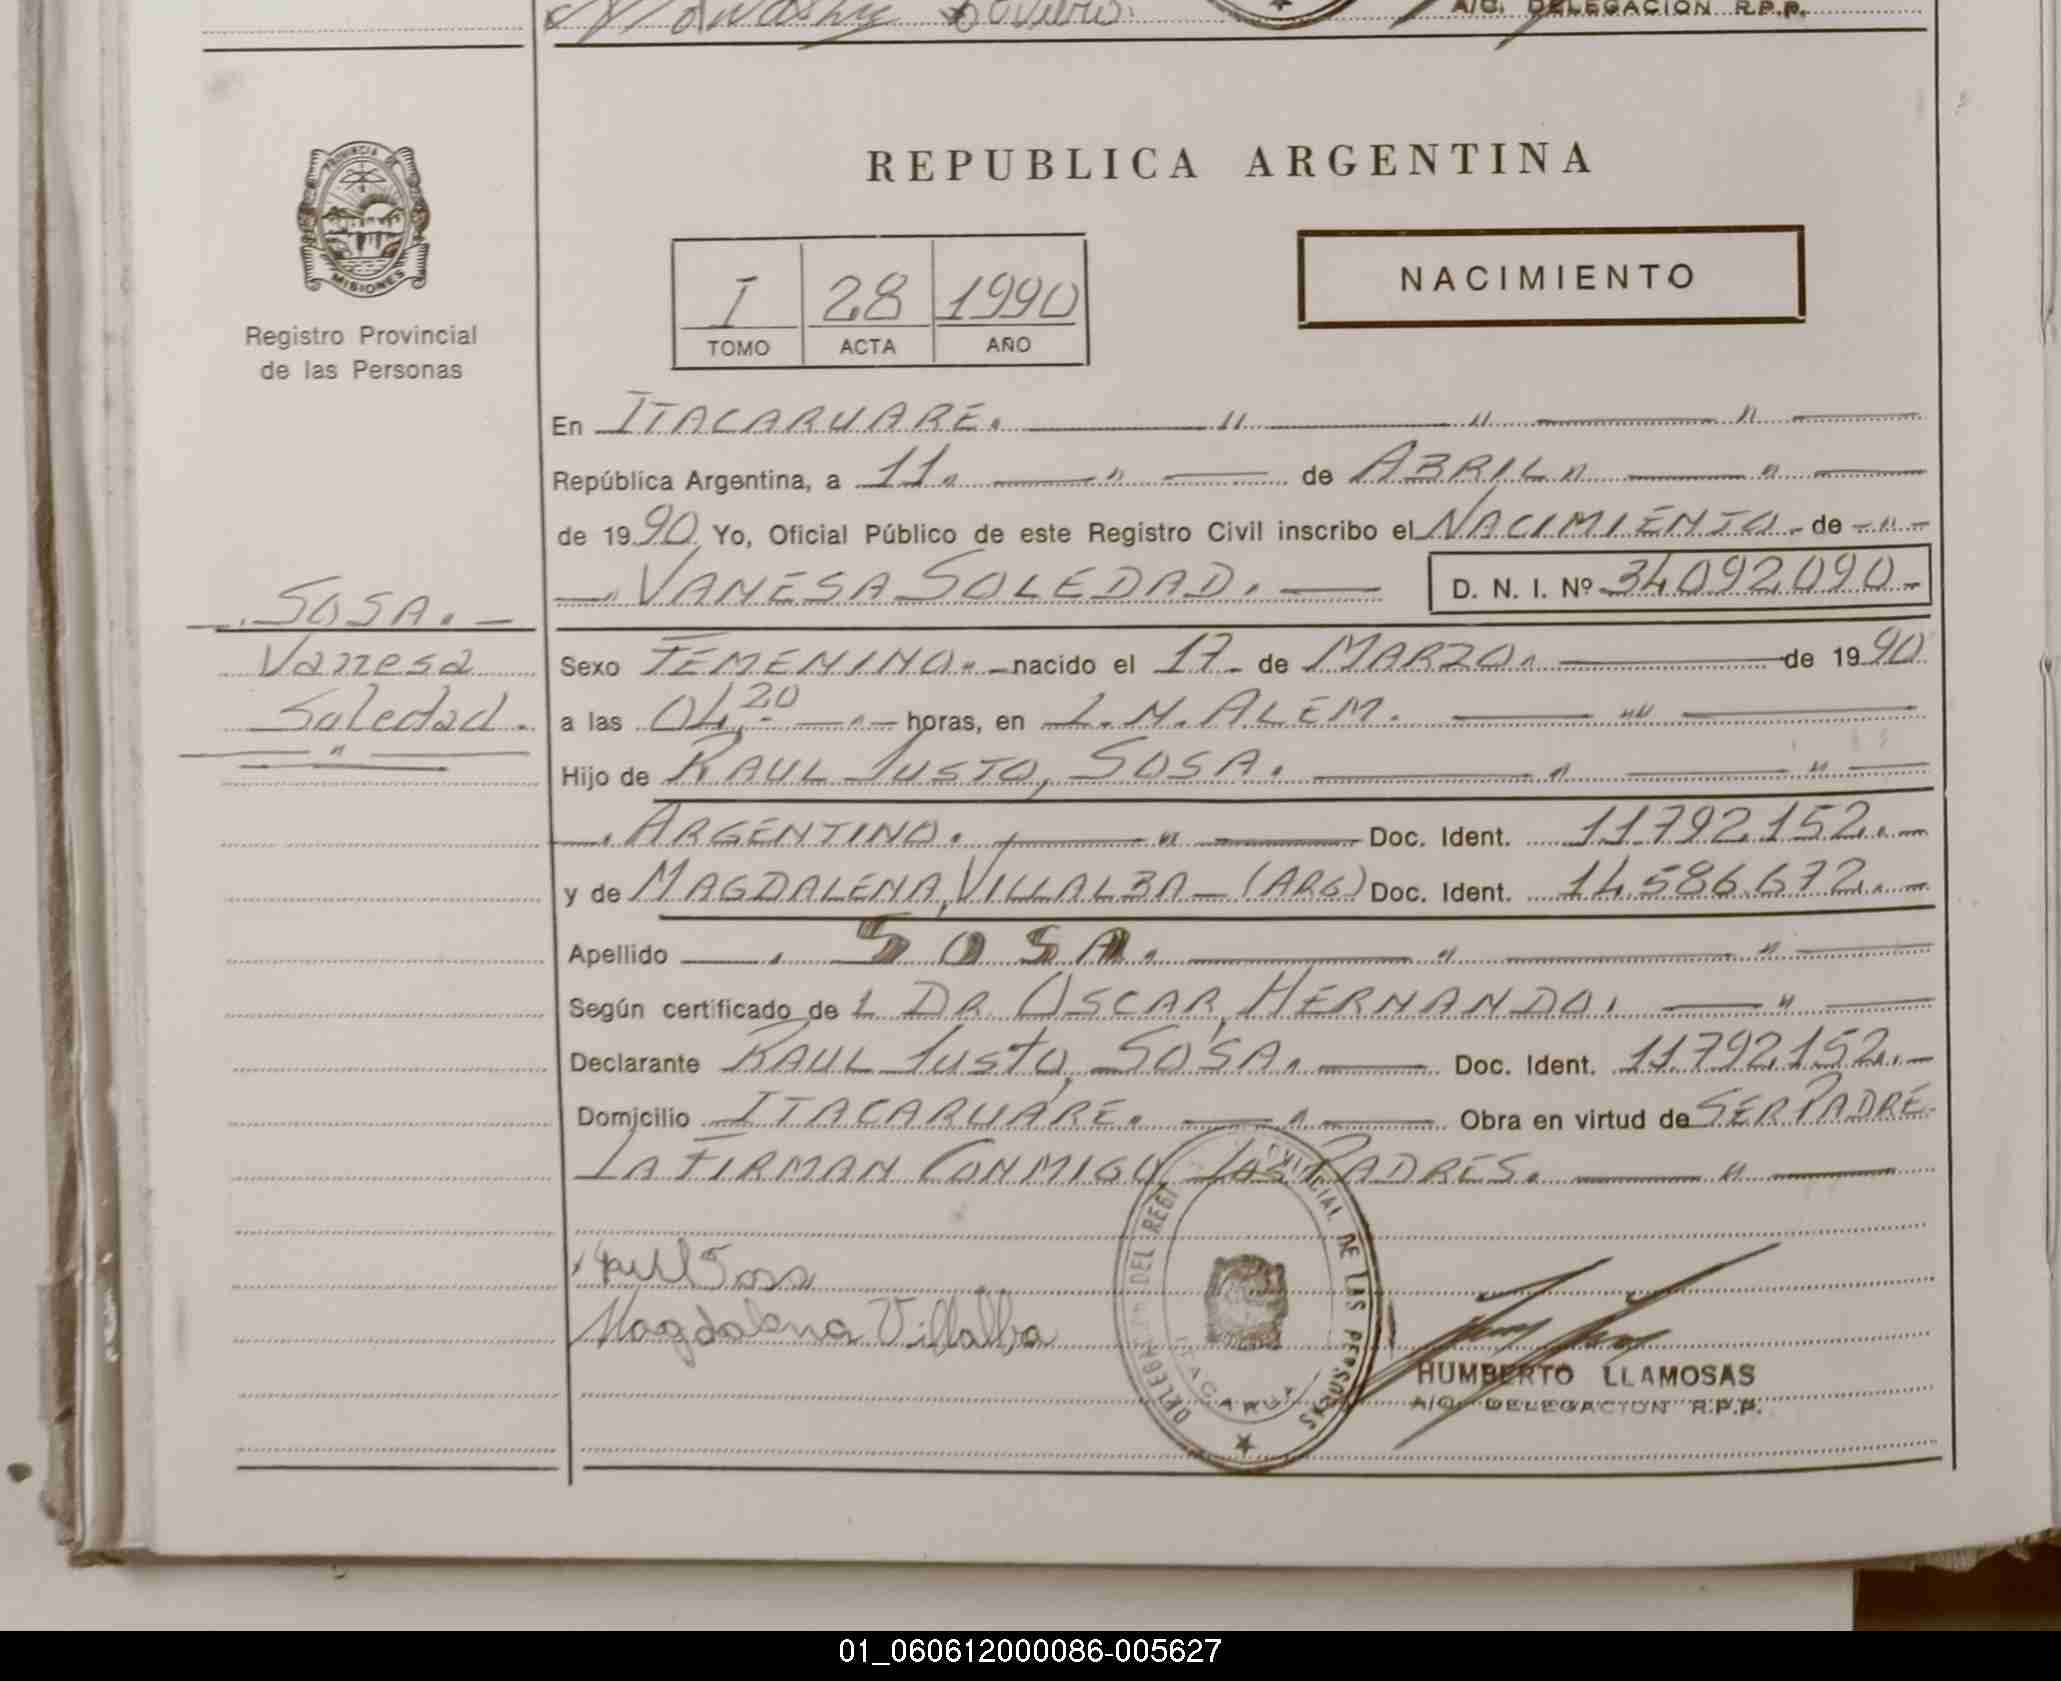 A/C. DELEGACION R.P.P.
PROVINCIA DE
MISIONES
Registro Provincial
de las Personas
REPUBLICA ARGENTINA
I 28 1990
TOMO ACTA AÑO
NACIMIENTO
En ITACARUARE.
República Argentina, a 11 de ABRIL
de 1990 Yo, Oficial Público de este Registro Civil inscribo el NACIMIENTO de
VANESA SOLEDAD. D. N. I. Nº 34092090.-
SOSA.-
Vanesa
Soledad.
Sexo FEMENINO. nacido el 17 de MARZO de 1990
a las 04,20 horas, en L.N. ALEM.
Hijo de RAUL JUSTO, SOSA.
ARGENTINO. Doc. Ident. 11792152.-
y de MAGDALENA, VILLALBA - (ARG) Doc. Ident. 14.586.672.-
Apellido SOSA.
Según certificado de L DR OSCAR, HERNANDO.
Declarante RAUL JUSTO, SOSA. Doc. Ident. 11792152.-
Domicilio ITACARUARE. Obra en virtud de SER PADRE.
LA FIRMAN CONMIGO LOS PADRES.
Raul Sosa
Magdalena Villalba
DEL REGI VINCIAL DE LAS PERSONAS
HUMBERTO LLAMOSAS
A/C. DELEGACION R.P.P.
01_060612000086-005627